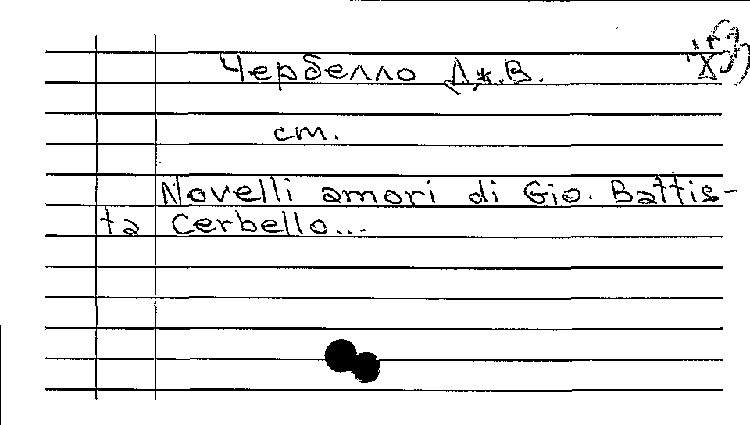 Чербелло Дж.В.
см.
Novelli amori di Gio. Battis-
ta Cerbello...